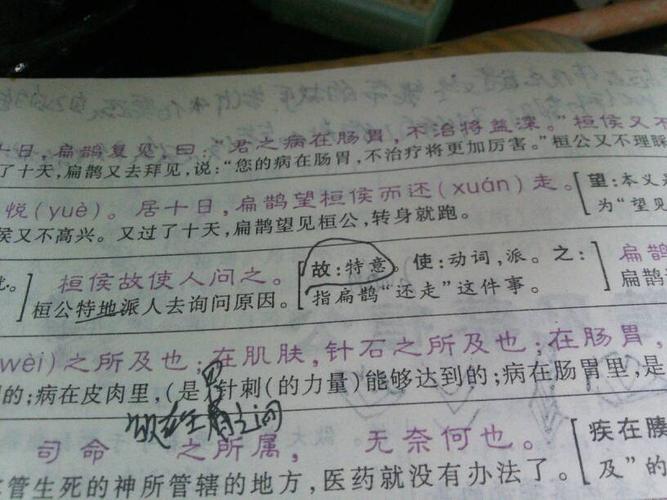 十日，扁鹊复见，曰：君之病在肠胃，不治将益深。”桓侯又不
了十天，扁鹊又去拜见，说：“您的病在肠胃，不治疗将更加厉害。”桓公又不理睬
悦(yuè)。居十日，扁鹊望桓侯而还(xuán)走。[望：本义
侯又不高兴。又过了十天，扁鹊望见桓公，转身就跑。为“望见
] 桓侯故使人问之。[故：特意。使：动词，派。之：] 扁鹊
桓公特地派人去询问原因。指扁鹊“还走”这件事。扁鹊
wèi)之所及也；在肌肤，针石之所及也；在肠胃，
的；病在皮肉里，(是针刺(的力量)能够达到的；病在肠胃里，是
司命之所属，无奈何也。[疾在腠
管生死的神所管辖的地方，医药就没有办法了。及”的